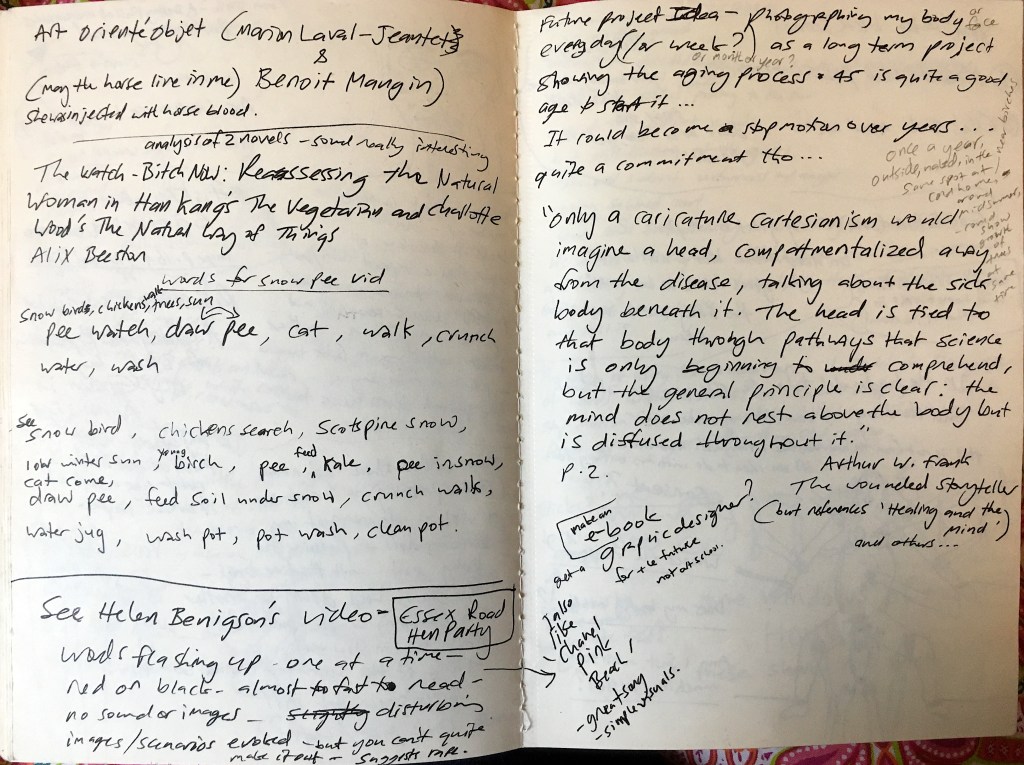 Art orienté objet (Marion Laval-Jeantet
&
(may the horse live in me) Benoit Mangin)
She was injected with horse blood.
analysis of 2 novels - sound really interesting
The Watch - Bitch Now: Reassessing the Natural
Woman in Han Kang's The Vegetarian and Charlotte
Wood's The Natural Way of Things
Alix Beeston
words for snow pee vid
snow birds, chickens, walk, trees, sun
pee watch, draw pee, cat, walk, crunch
water, wash
see
snow bird, chickens search, scotspine snow,
low winter sun, young birch, pee, feed kale, pee in snow,
cat come,
draw pee, feed soil under snow, crunch walk,
water jug, wash pot, pot wash, clean pot.
See Helen Benigson's video - Essex Road
Hen Party
words flashing up - one at a time -
red on black - almost too fast to read -
no sound or images - slightly disturbing
images/scenarios evoked - but you can't quite
make it out - suggests rape.
Future project Idea - photographing my body or face
everyday (or week?) as a long term project
or month or year?
showing the aging process. 45 is quite a good
age to start it ...
It could become a stopmotion over years ...
quite a commitment tho ...
once a year,
outside, naked, in the
same spot at
cold home
- near birches
round
midsummer,
show
growth
of
trees
at
same
time
"only a caricature cartesianism would
imagine a head, compartmentalized away
from the disease, talking about the sick
body beneath it. The head is tied to
that body through pathways that science
is only beginning to comprehend,
but the general principle is clear: the
mind does not rest above the body but
is diffused throughout it."
p. 2.
Arthur W. Frank
The Wounded Storyteller
(but references 'Healing and the
Mind')
and others...
make an
e-book
get a graphic designer?
for the future
not art school.
I also
like
Chanel
Pink
Beach
- great song
- simple visuals.